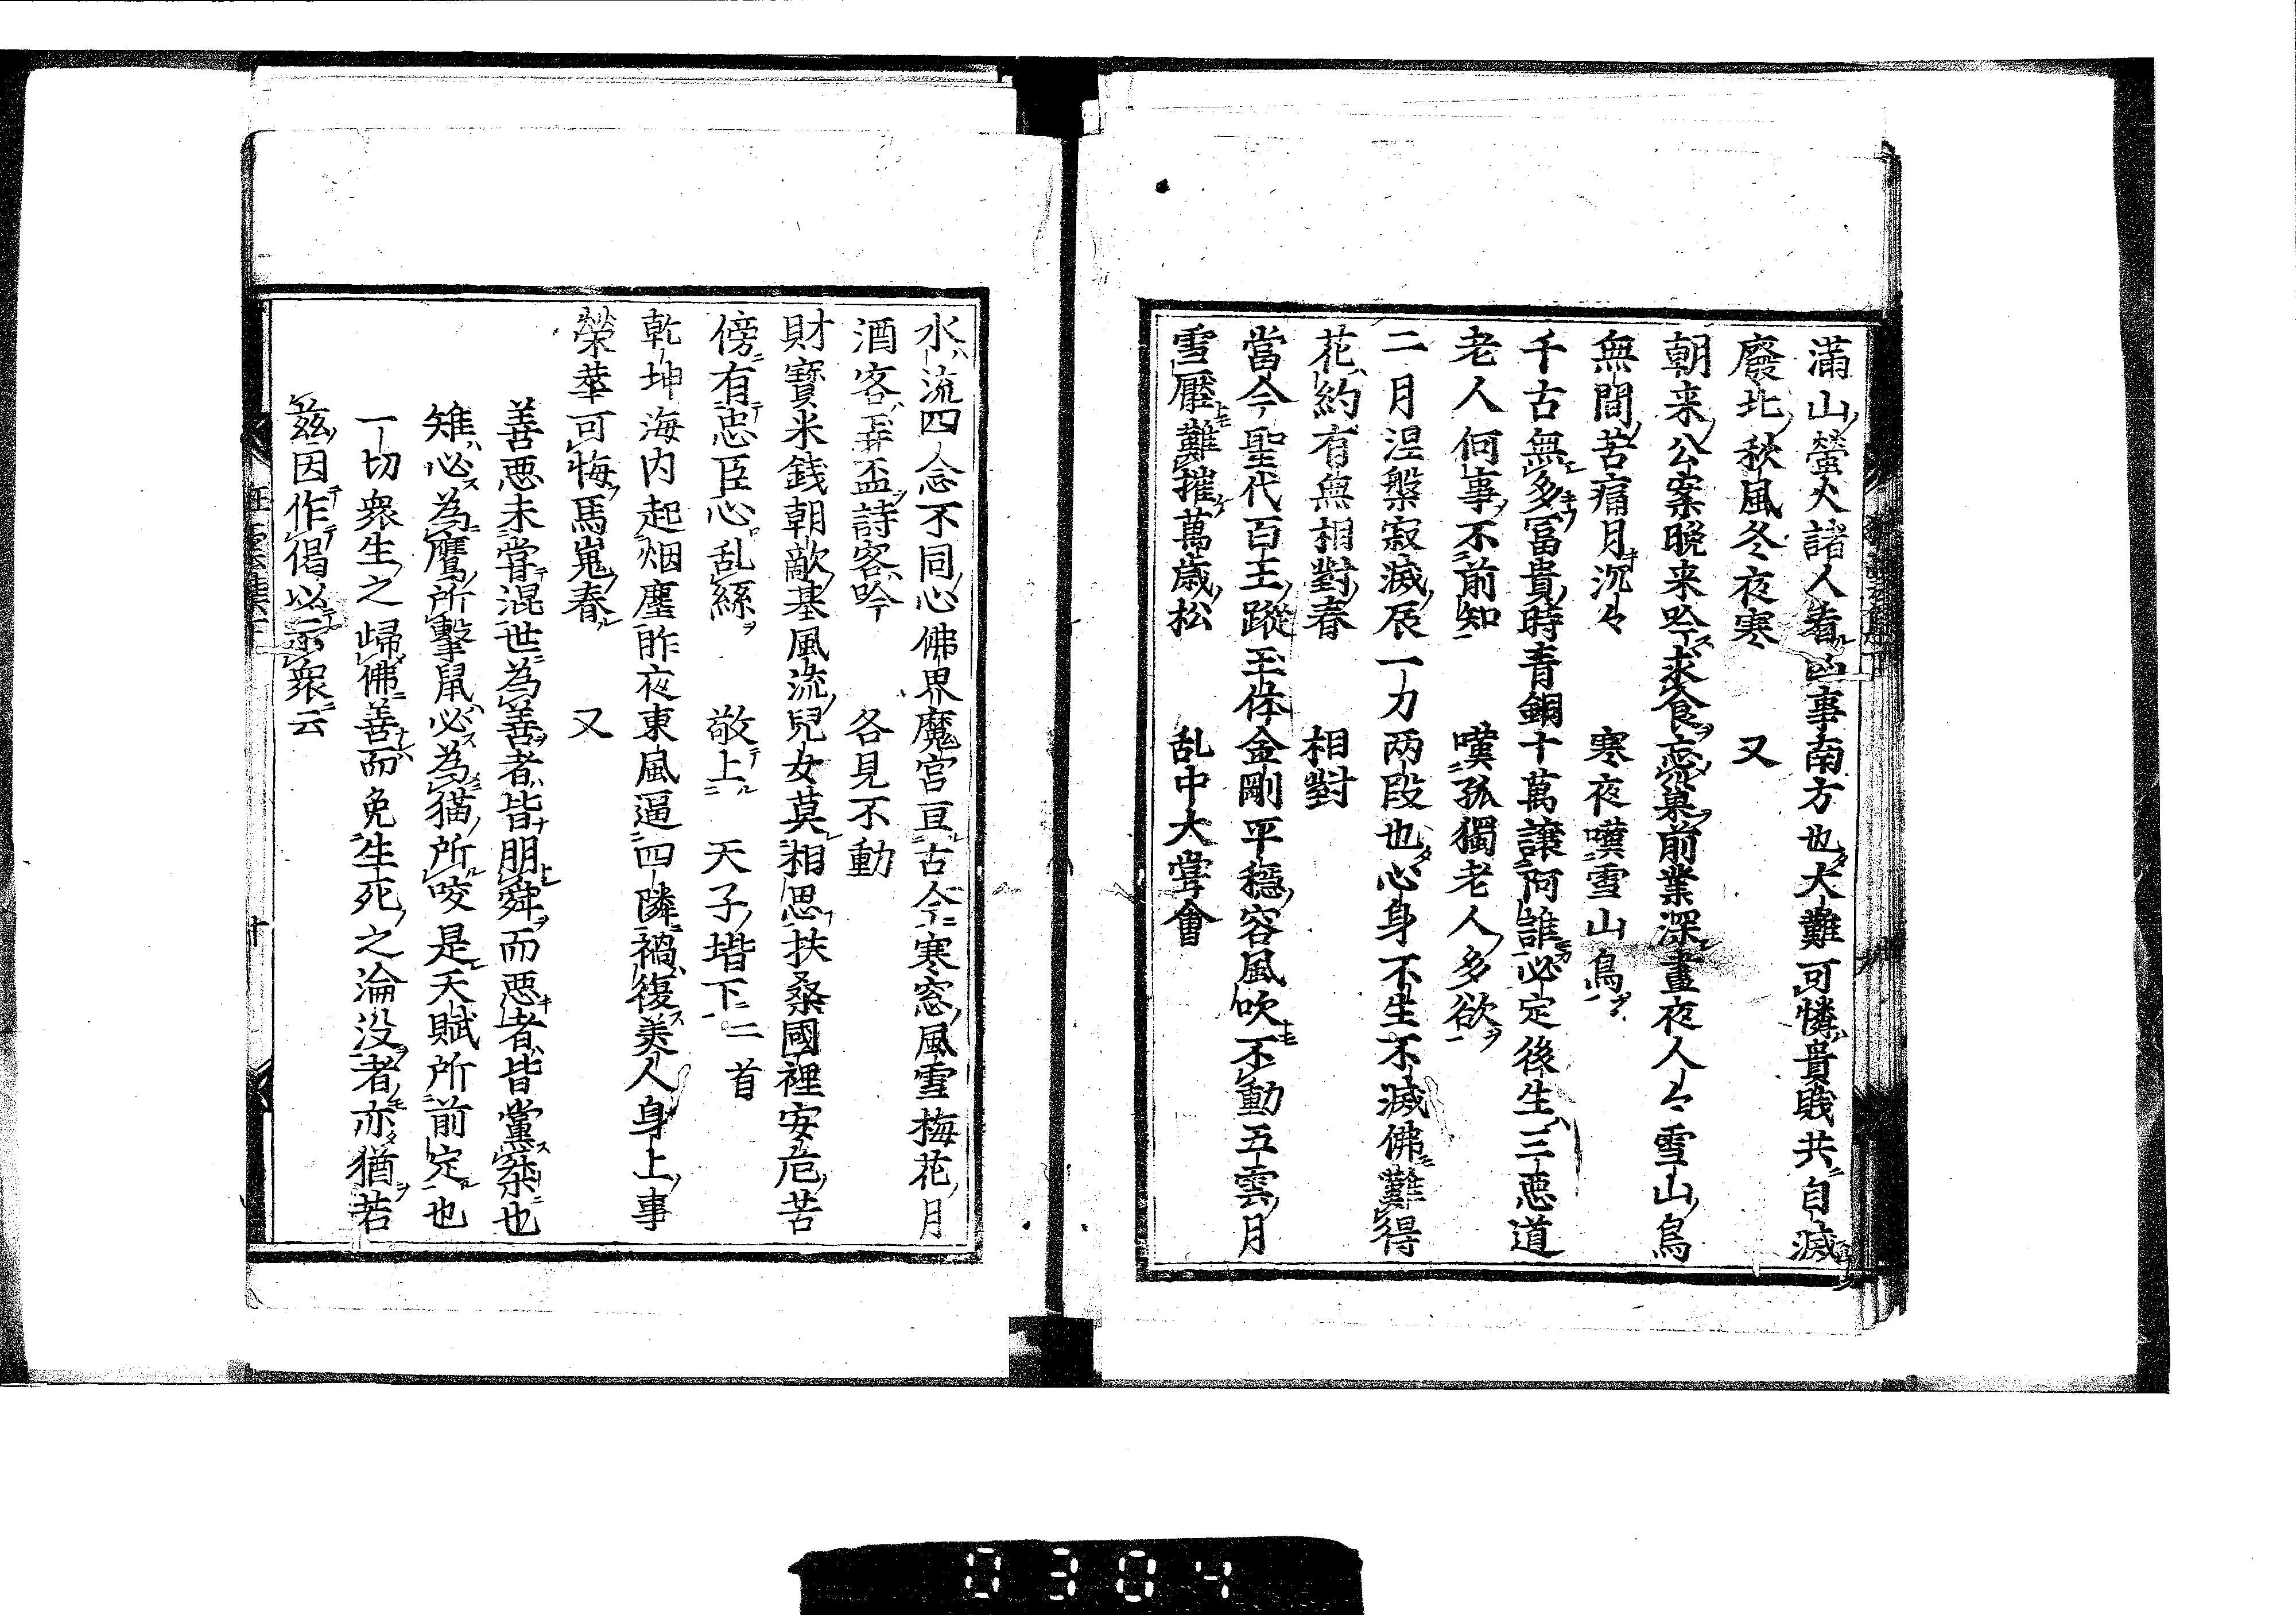 滿山螢火諸人看凶事南方也大難可憐貴賎共自滅
廢北秋風冬夜寒　又
朝来公案晩来吟求食忘巣前業深晝夜人々雪山鳥
無間苦痛月沉々　寒夜嘆雪山鳥
千古無多冨貴時青銅十萬譲阿誰必定後生三悪道
老人何事不前知　嘆孤獨老人多欲
二月涅槃寂滅辰一刀两段也心身不生不滅佛難得
花約有無相對春　相對
當今聖代百王蹤玉体金剛平穏容風吹不動五雲月
雪壓難摧萬歳松　乱中大嘗會
水流四念不同心佛界魔宮亘古今寒窓風雪梅花月
酒客弄盃詩客吟　各見不動
財寶米銭朝敵基風流兒女莫相思扶桑國裡安危苦
傍有忠臣心乱絲　敬上　天子堦下二首
乾坤海内起烟塵昨夜東風逼四隣禍復美人身上事
榮華可悔馬嵬春　又
善悪未甞混世為善者皆朋舜而悪者皆黨桀也
雉必為鷹所擊鼠必為猫所咬是天賦所前定也
一切衆生之歸佛善而免生死之淪没者亦猶若
茲因作偈以示衆云
狂雲集下
十
0304